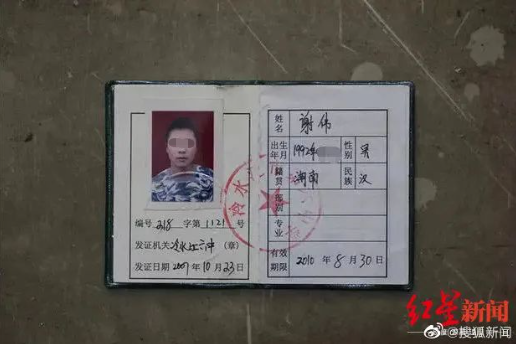 编号 218 字第 1121 号
发证机关 冷水江六中 (章)
发证日期 2007 年 10 月 23 日
姓名 谢伟
出生年月 1992年 性别 男
籍贯 湖南 民族 汉
班别
专业
有效期限 2010 年 8 月 30 日
冷水
红星新闻
@搜狐新闻